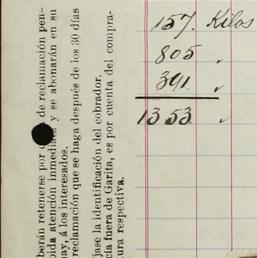 157. Kilos
805 "
391. "
1353 "
berán retenerse por de reclamación pen-
bida atención inmediata y se abonarán en su
nay, á los interesados.
reclamación que se haga después de los 30 días
jase la identificación del cobrador.
cía fuera de Garita, es por cuenta del compra-
ura respectiva.